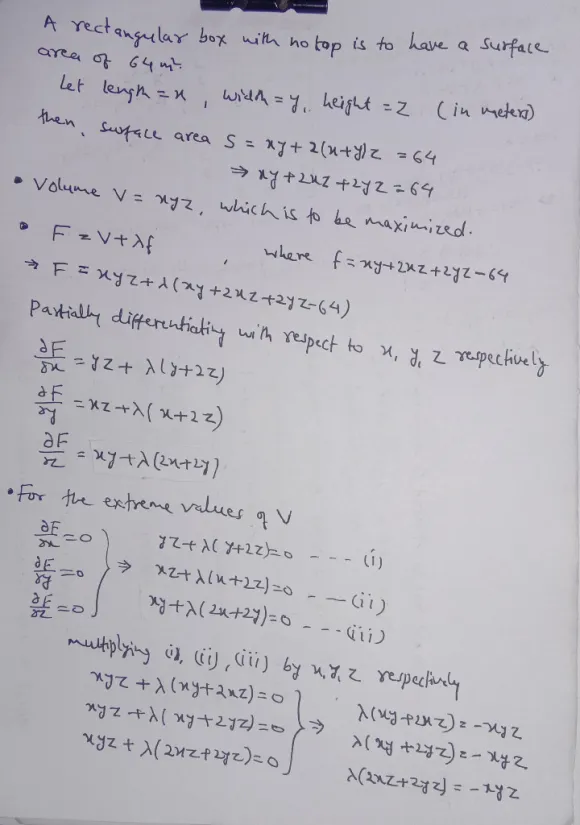 A rectangular box with no top is to have a surface
area of 64 m².
Let length = x , width = y, height = z (in meters)
then, surface area S = xy + 2(x+y)z = 64
⇒ xy + 2xz + 2yz = 64
• Volume V = xyz, which is to be maximized.
• F = V + λf , where f = xy+2xz+2yz-64
⇒ F = xyz + λ(xy + 2xz + 2yz-64)
Partially differentiating with respect to x, y, z respectively
∂F/∂x = yz + λ(y+2z)
∂F/∂y = xz + λ(x+2z)
∂F/∂z = xy + λ(2x+2y)
• For the extreme values of V
∂F/∂x = 0 } ⇒ yz + λ(y+2z)=0 - - - - (i)
∂F/∂y = 0 xz + λ(x+2z)=0 - - - (ii)
∂F/∂z = 0 xy + λ(2x+2y)=0 - - - (iii)
multiplying (i), (ii), (iii) by x, y, z respectively
xyz + λ(xy+2xz)=0 } ⇒ λ(xy+2xz) = -xyz
xyz + λ(xy+2yz)=0 λ(xy+2yz) = -xyz
xyz + λ(2xz+2yz)=0 λ(2xz+2yz) = -xyz